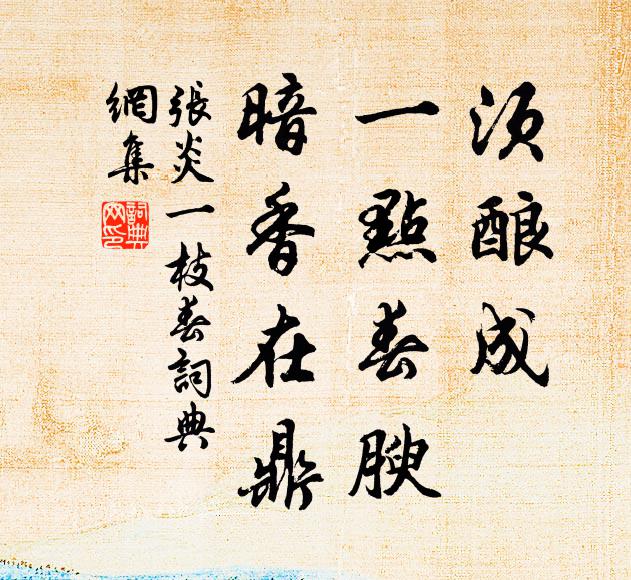 须酿成
一點春腴
暗香在鼎
張炎一枝春詞典
網集
詞典
网印